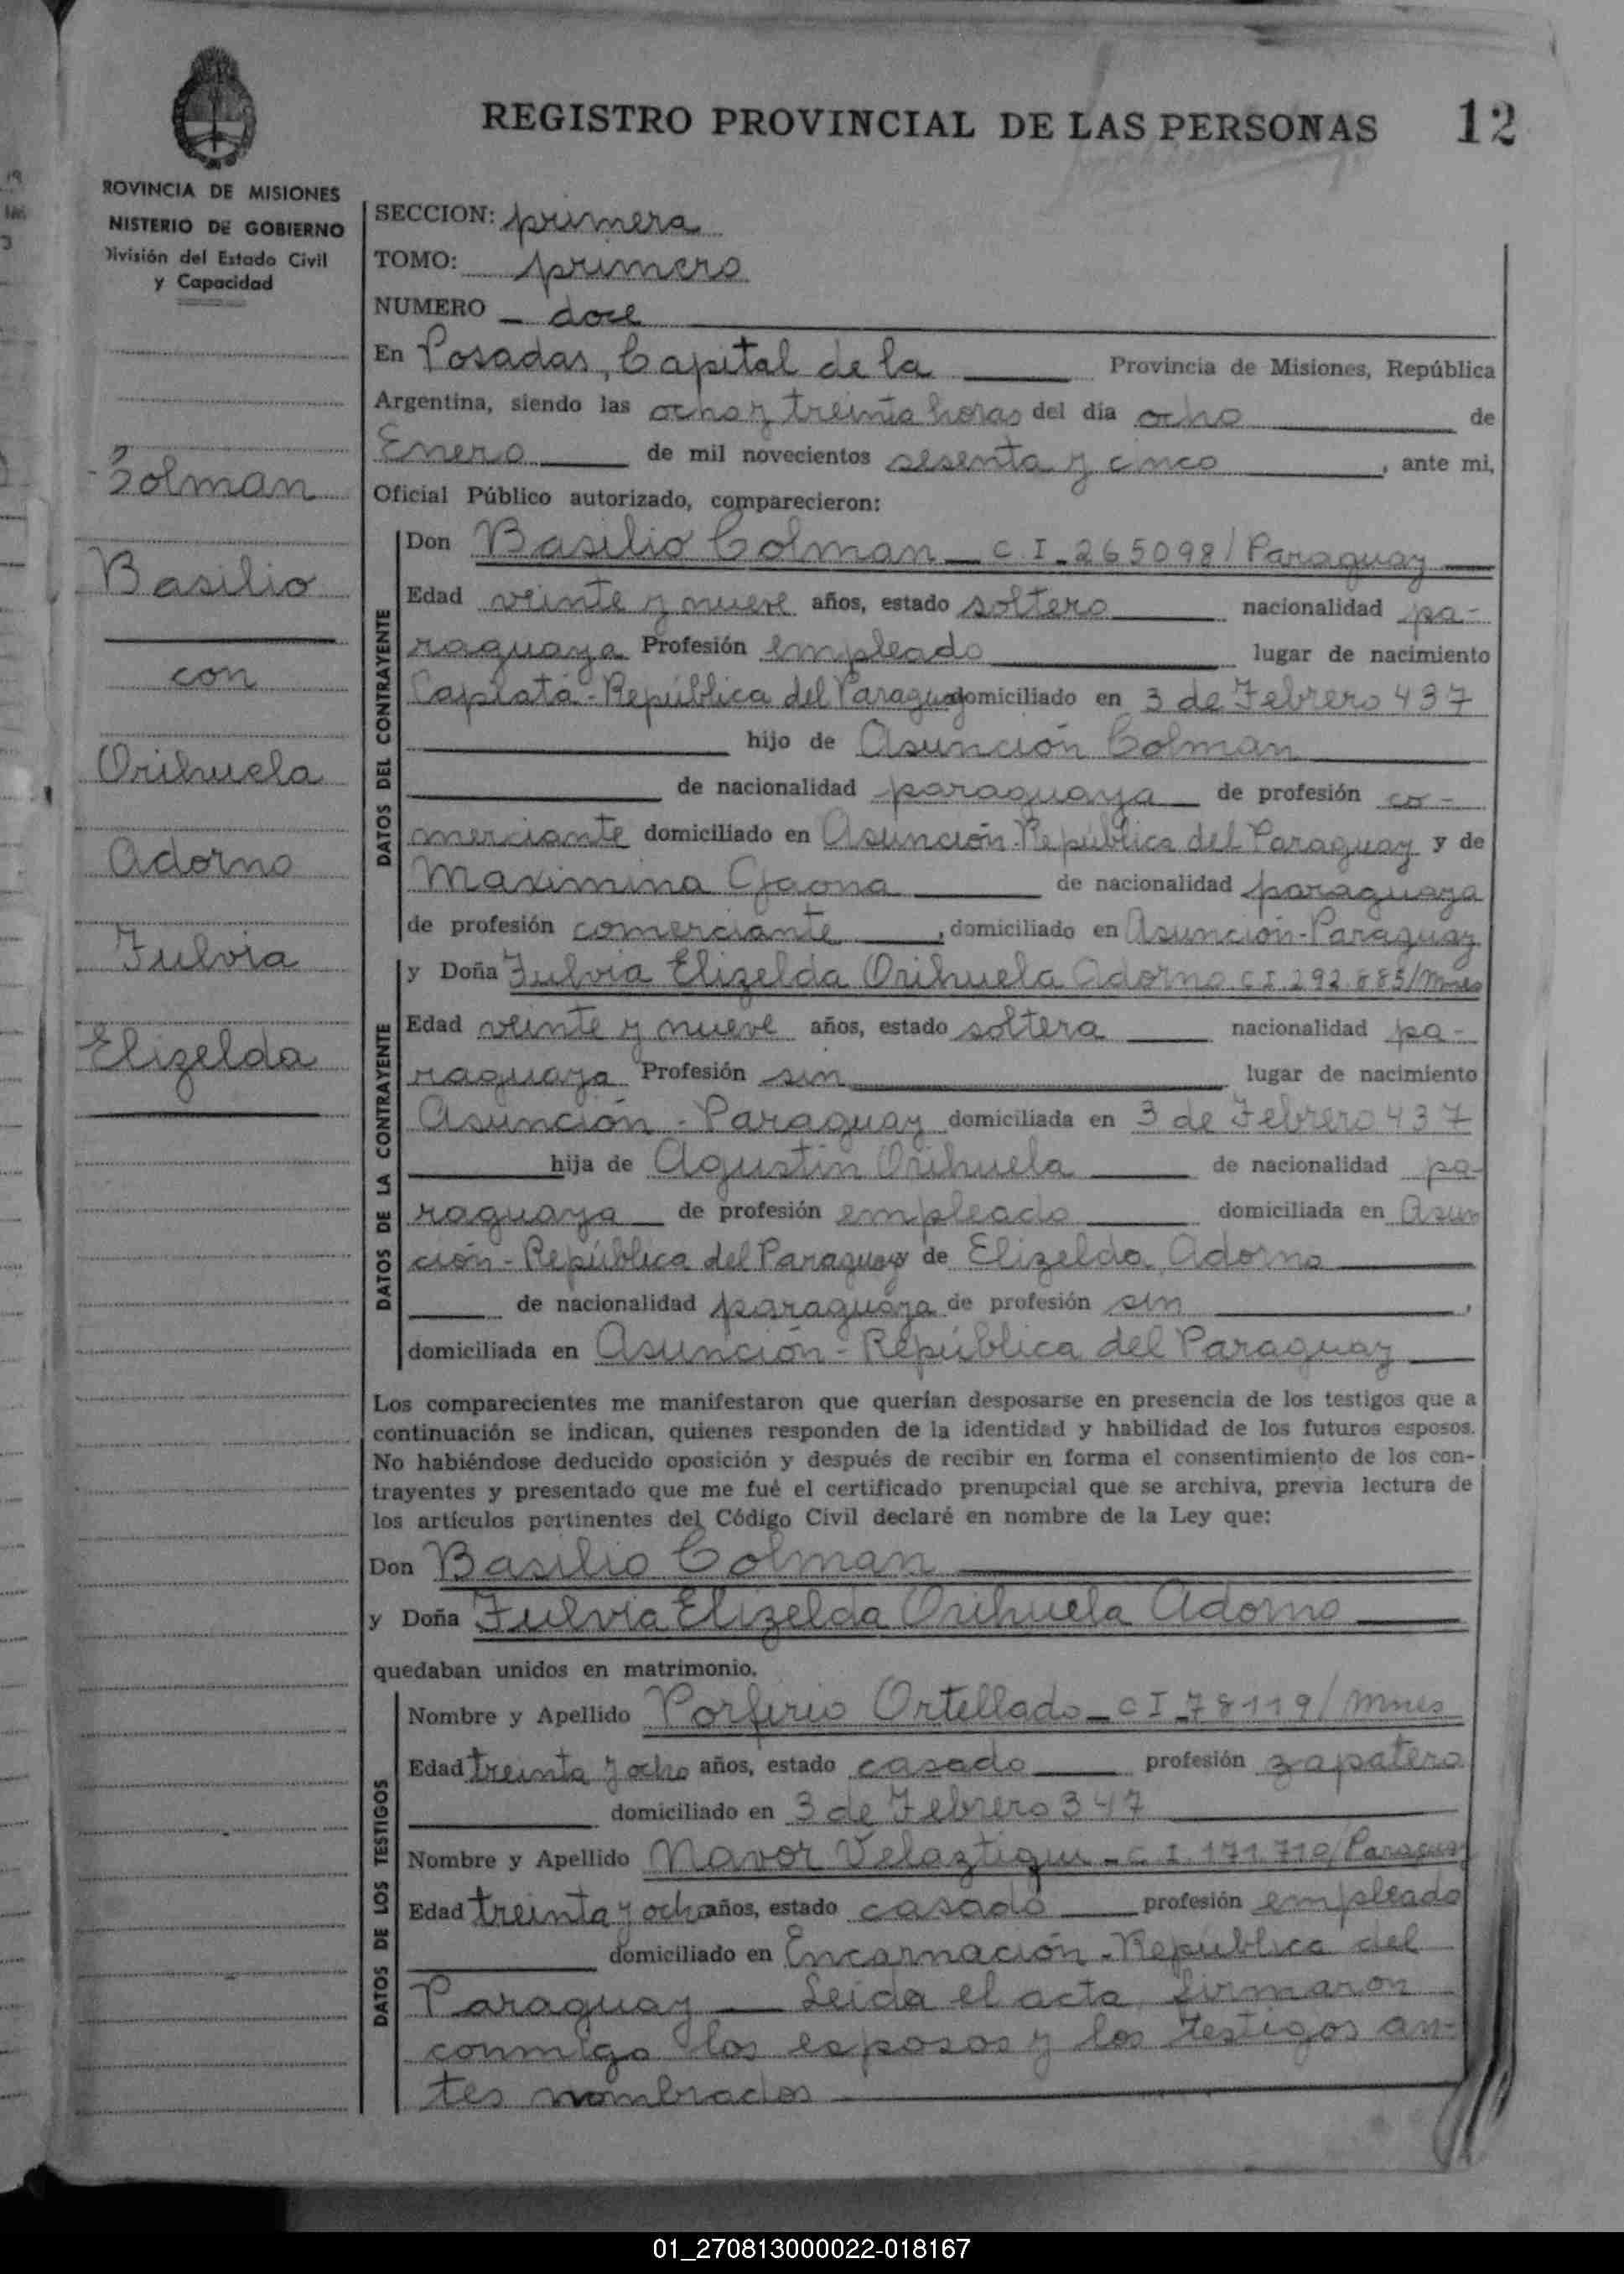 REGISTRO PROVINCIAL DE LAS PERSONAS 12
ROVINCIA DE MISIONES
NISTERIO DE GOBIERNO
División del Estado Civil
y Capacidad
Colman
Basilio
con
Orihuela
Adorno
Fulvia
Elizelda
SECCION: primera
TOMO: primero
NUMERO doce
En Posadas, Capital de la Provincia de Misiones, República
Argentina, siendo las ocho y treinta horas del día ocho de
Enero de mil novecientos sesenta y cinco, ante mi,
Oficial Público autorizado, comparecieron:
DATOS DEL CONTRAYENTE
Don Basilio Colman - C. I. 265098/Paraguay
Edad veinte y nueve años, estado soltero nacionalidad pa-
raguaya Profesión empleado lugar de nacimiento
Capiatá - República del Paraguay domiciliado en 3 de Febrero 437
hijo de Asunción Colman
de nacionalidad paraguaya de profesión co-
merciante domiciliado en Asunción - República del Paraguay y de
Maximina Gaona de nacionalidad paraguaya
de profesión comerciante, domiciliado en Asunción - Paraguay
DATOS DE LA CONTRAYENTE
y Doña Fulvia Elizelda Orihuela Adorno C.I. 292.885/Mnes
Edad veinte y nueve años, estado soltera nacionalidad pa-
raguaya Profesión sin lugar de nacimiento
Asunción - Paraguay domiciliada en 3 de Febrero 437
hija de Agustín Orihuela de nacionalidad pa-
raguaya de profesión empleado domiciliada en Asun
ción - República del Paraguay y de Elizelda Adorno
de nacionalidad paraguaya de profesión sin,
domiciliada en Asunción - República del Paraguay
Los comparecientes me manifestaron que querían desposarse en presencia de los testigos que a
continuación se indican, quienes responden de la identidad y habilidad de los futuros esposos.
No habiéndose deducido oposición y después de recibir en forma el consentimiento de los con-
trayentes y presentado que me fué el certificado prenupcial que se archiva, previa lectura de
los artículos pertinentes del Código Civil declaré en nombre de la Ley que:
Don Basilio Colman
y Doña Fulvia Elizelda Orihuela Adorno
quedaban unidos en matrimonio.
DATOS DE LOS TESTIGOS
Nombre y Apellido Porfirio Ortellado - C I 78119/Mnes
Edad treinta y ocho años, estado casado profesión zapatero
domiciliado en 3 de Febrero 347
Nombre y Apellido Navor - C. I. 171.710/Paraguay
Edad treinta y ocho años, estado casado profesión empleado
domiciliado en Encarnación - República del
Paraguay Leida el acta, firmaron
conmigo los esposos y los testigos an-
tes nombrados
01_270813000022-018167